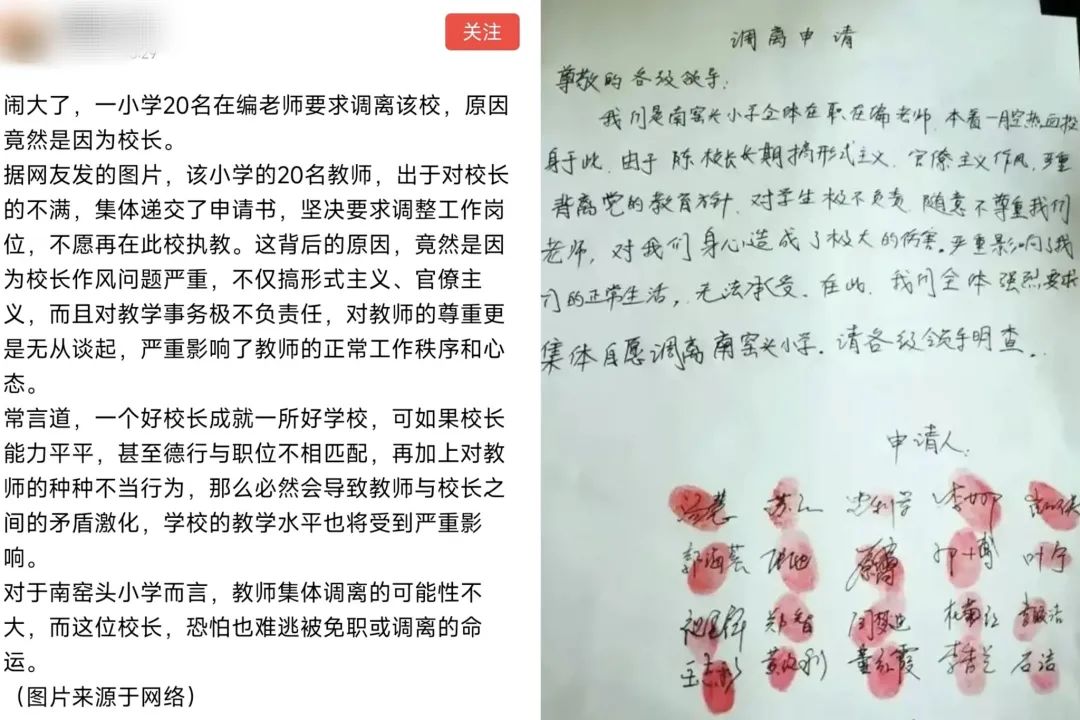 关注
闹大了，一小学20名在编老师要求调离该校，原因
竟然是因为校长。
据网友发的图片，该小学的20名教师，出于对校长
的不满，集体递交了申请书，坚决要求调整工作岗
位，不愿再在此校执教。这背后的原因，竟然是因
为校长作风问题严重，不仅搞形式主义、官僚主
义，而且对教学事务极不负责任，对教师的尊重更
是无从谈起，严重影响了教师的正常工作秩序和心
态。
常言道，一个好校长成就一所好学校，可如果校长
能力平平，甚至德行与职位不相匹配，再加上对教
师的种种不当行为，那么必然会导致教师与校长之
间的矛盾激化，学校的教学水平也将受到严重影
响。
对于南窑头小学而言，教师集体调离的可能性不
大，而这位校长，恐怕也难逃被免职或调离的命
运。
（图片来源于网络）
调离申请
尊敬的各级领导：
我们是南窑头小学全体在职在编老师，本着一腔热血投
身于此，由于陈校长长期搞形式主义、官僚主义作风，严重
背离党的教育方针，对学生极不负责，随意不尊重我们
老师，对我们身心造成了极大的伤害。严重影响了我
们的正常生活，无法承受。在此，我们全体强烈要求
集体自愿调离南窑头小学。请各级领导明查。
申请人：
郭海芸 叶宁
郑智
董红霞 石洁